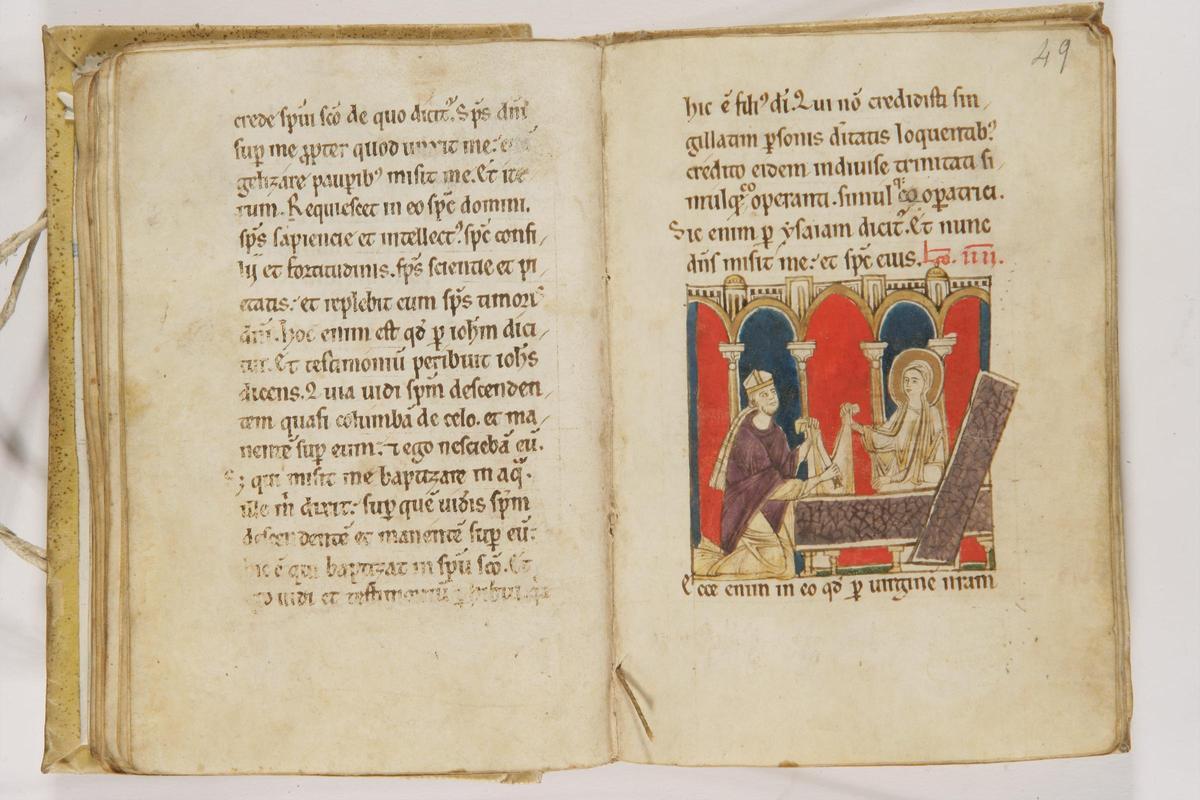 crede sp̄ui sc̄o de quo dicit᷑. Sp̄s dn̄i
sup̱ me ꝓpter quod unxit me: e
gelizare paup̱ib᷒ misit me. Et ite
rum. Requiescet in eo sp̄c domini,
sp̄s sapiencie et intellect᷒. sp̄c consi/
lij et fortitudinis. sp̄s scientie et pi
etatis: et replebit eum sp̄s timoris
dn̄i. hoc enim est qd̄ p̱ ioh̄m dici/
tur. Et testimoniū peribuit ioh̄s
dicens. Quia uidi sp̄m descenden
tem quasi columbā de celo. et ma/
nentē sup̱ eum: ⁊ ego nesciebā eū.
S; qui misit me baptizare in aq̄.
ille m̄ dixit: sup̱ quē uidis sp̄m
descendentē et manentē sup̱ eū:
hic ē qui baptizat in sp̄u sc̄o. Et
ego uidi et testimoniū p̱hibui. q̄a
49
hic ē fili᷒ dī. Qui nō credidisti sin/
gillatim p̱sonis d̄itatis loquentib᷒
credito eidem indiuise trinitati si/
mulq̱ꝫ coop̱anti. simul q̄ coop̱atrici.
Sic enim p̱ ysaiam dicit᷑. Et nunc
dn̄s misit me: et sp̄c eius. Lc̄o. IIII.
Ecce enim in eo qd̄ p̱ uirgine n̄ram